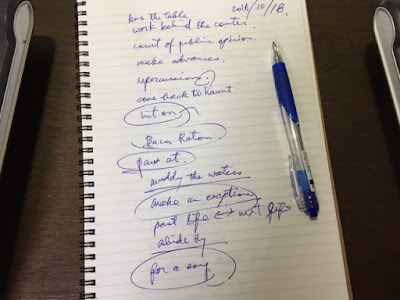 bus the table 2016/10/18.
work behind the counter.
court of public opinion.
make advances.
repercussions.
come back to haunt.
hit on
Boca Raton
paw at.
muddy the waters
make an exception
past life ↔ next life
abide by
for a song